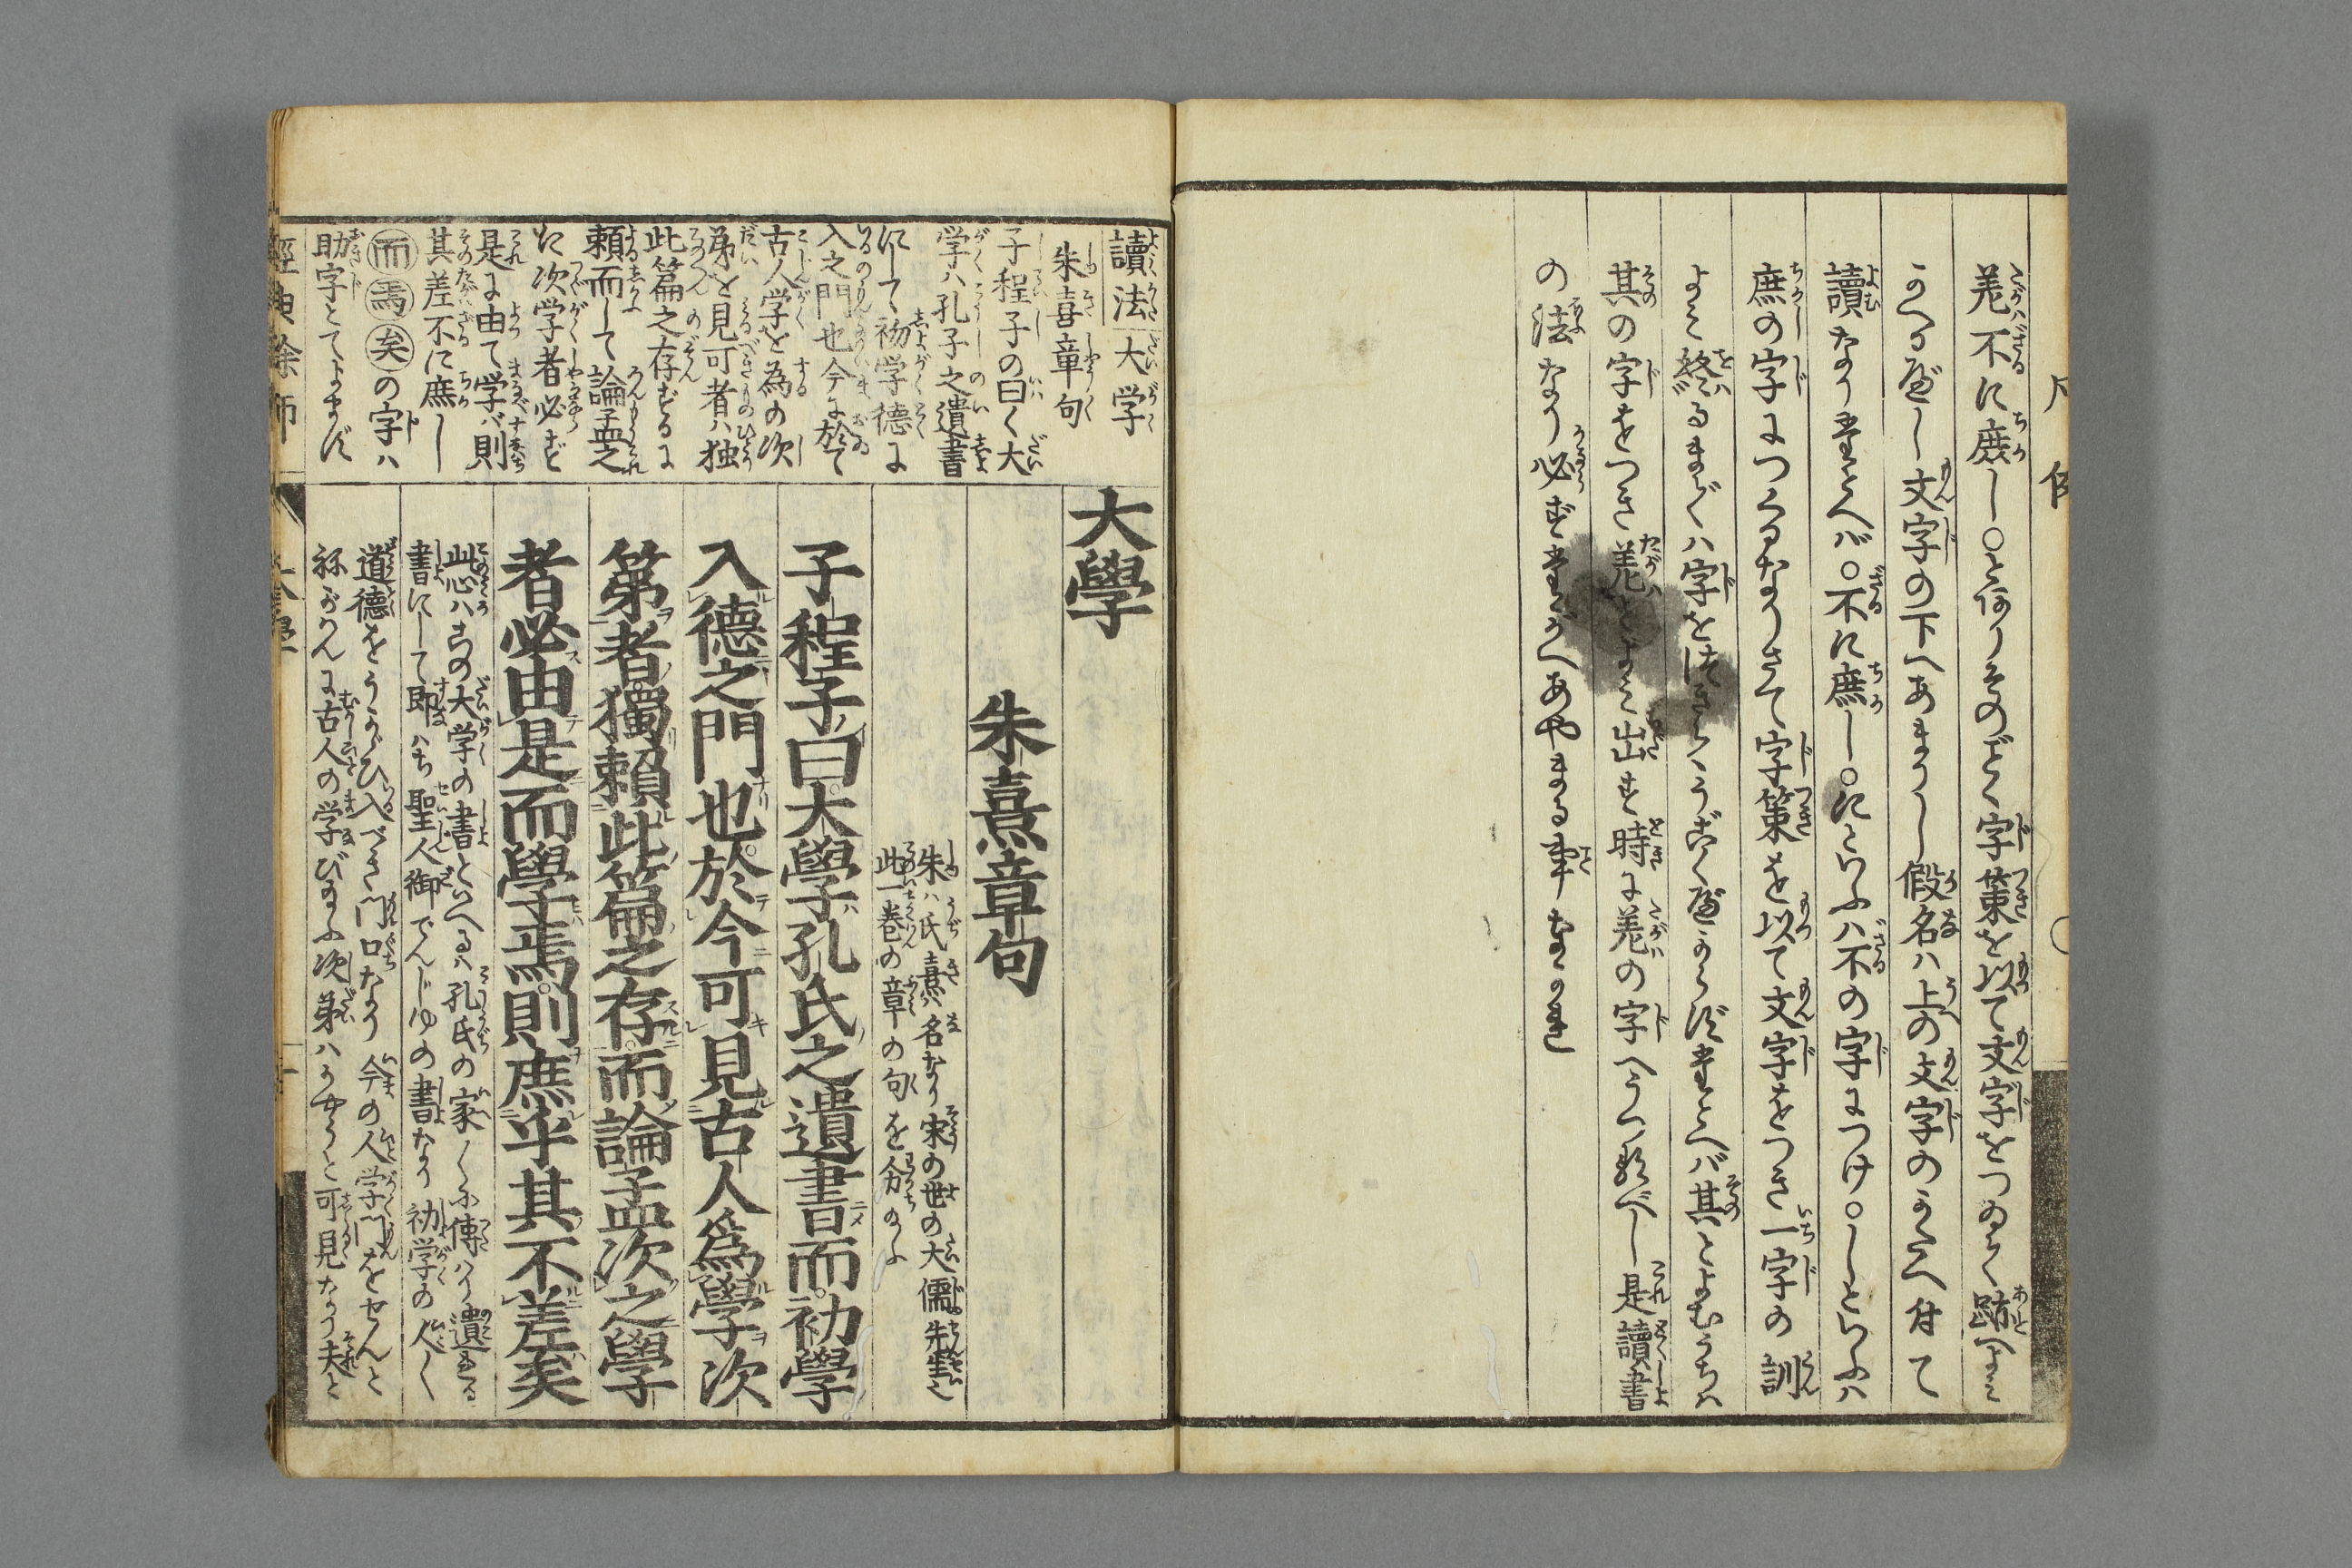 凡例
差不に庶し○と何りそのごとく字策を以て文字をつゐてく跡へよミ
かへる座し文字の下へあまりし假名ハ上の文字のかたへ付て
讀なりたとへバ○不に庶し○にといふハ不の字につけ○しといふハ
庶の字につくるなりさて字策を以て文字をつき一字の訓
よミ終るまでハ字をはなさくうごく座からずたとへバ其とよむうちハ
其の字をつき差とよミ出す時に差の字へうつるべし是讀書
の法なり必ずたがへあやまる事なかれ
讀法 大学
朱熹章句
子程子の曰く大
学ハ孔子之遺書
にして初学徳に
入之門也今に於て
古人学を為の次
弟を見可者ハ独
此篇之存するに
頼而して論孟之
に次学者必ず
是に由て学バ則
其差不に庶し
而焉矣の字ハ
助字とてよまず
大學
朱熹章句
朱ハ氏熹ハ名なり宋の世の大儒先生之
此一巻の章の句を分のふ
子程子曰大學孔氏之遺書而初學
入德之門也於今可見古人爲學次
第者獨賴此篇之存而論孟次之學
者必由是而學焉則庶乎其不差矣
此心ハ此の大学の書といへるハ孔氏の家〱に傳ハり遺まる
書にして即ハち聖人御でんじゆの書なり初学の人〱
道德をうかゞひ入べき門口なり今の人学門をせんと
ねがハんに古人の学びなふ次第ハかやうと可見なり夫と
經典余師 大學 一